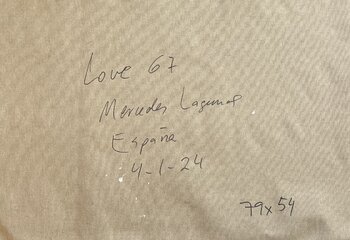 Love 67
Mercedes Lagunas
España
4-1-24
79x54